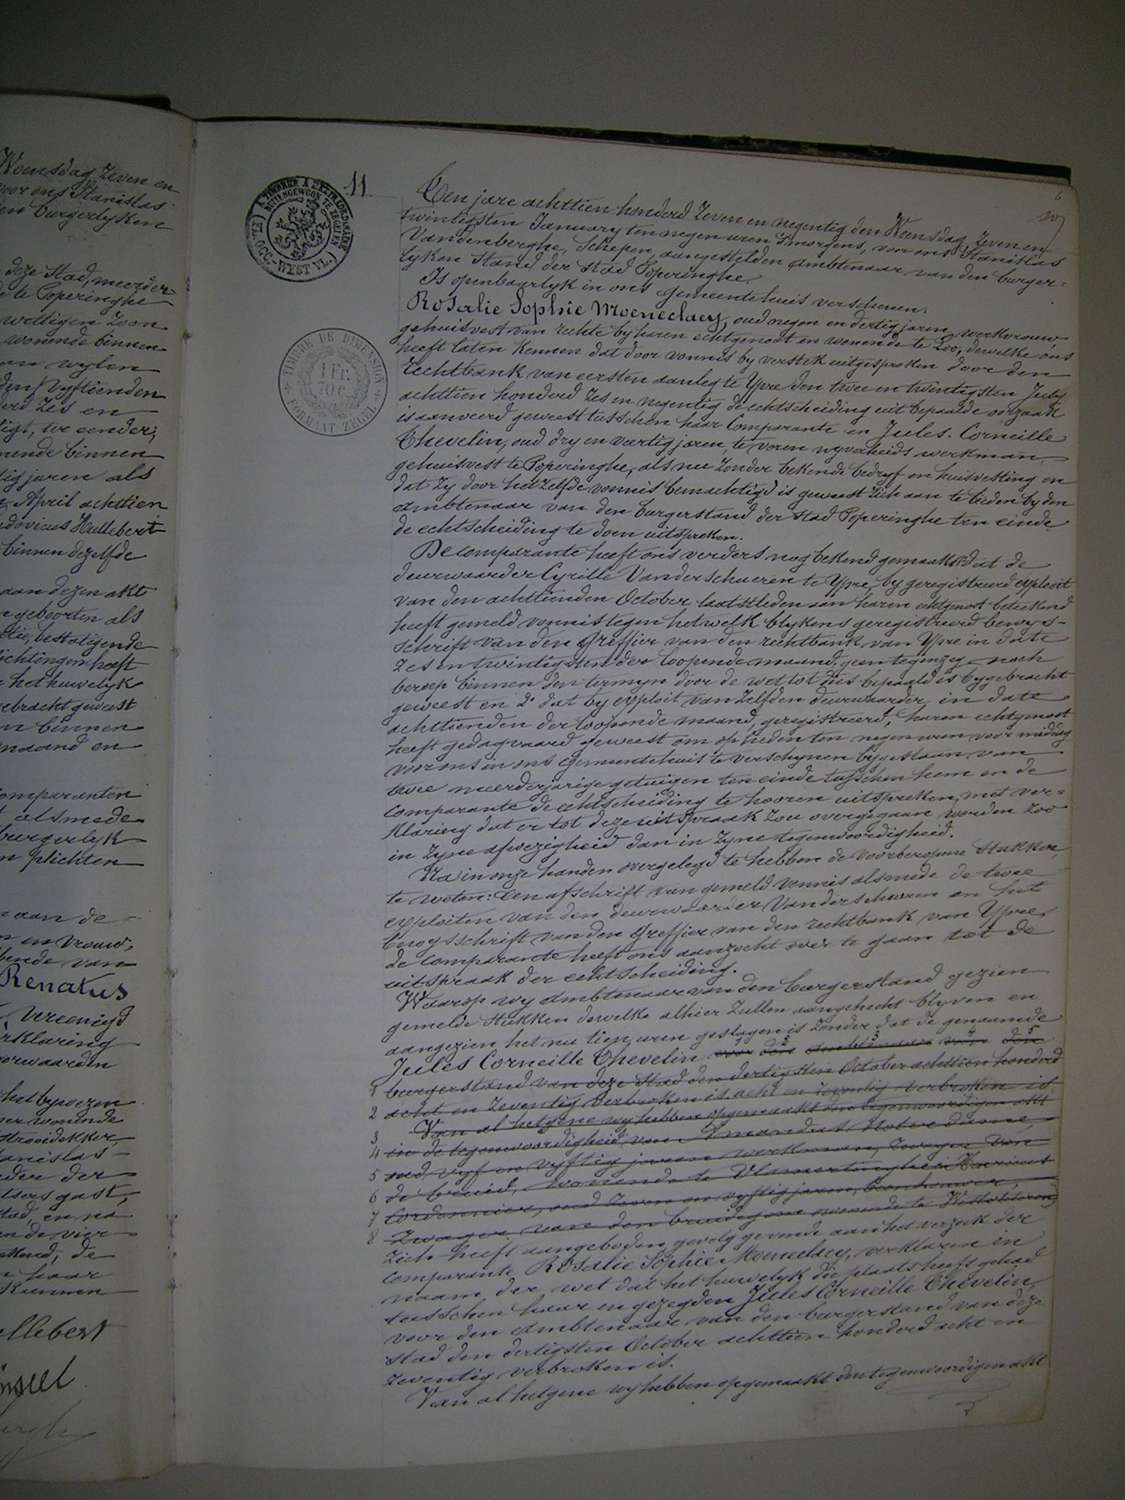 Woensdag Zeven en
voor ons Stanislas
den burgerlyken
deze Stad, meerder-
te Poperinghe
wettigen Zoon
wonende binnen
van wylen
den vyftienden
Zes en
binnen
tig jaren als
April achttien
Ludovicus Hullebert
binnen dezelfde
aan dezen akt
geboorten als
bestatigende
het huwelyk
gebracht geweest
binnen
maand en
comparanten
alsmede
burgerlyk
plichten
aan de
en vrouw,
Renatus
Vereenigd
verklaring
voorwaarden
wonende
Stanislas
der
Stad, en na
de vier
de
haar
Kunnen
Hullebert
11.
TIMBRE DE DIMENSION
1 FR.
70 C.
FORMAAT ZEGEL
6
Een jare achttien honderd Zeven en negentig den Woensdag Zeven en
twintigsten January ten negen uren 's morgens, voor ons Stanislas
Vandenberghe, Schepen, aangestelden ambtenaar van den burger-
lyken Stand der Stad Poperinghe.
Is openbaarlyk in ons gemeentehuis verschenen:
Rosalie Sophie Moeneclaey, oud negen en dertig jaren, werkvrouw
gehuisvest van rechte by haren echtgenoot en wonende te Loo, dewelke ons
heeft laten kennen dat door vonnis by verstek uitgesproken door den
rechtbank van eersten aanleg te Ypre den twee en twintigsten July
achttien honderd Zes en negentig de echtscheiding uit bepaalde oorzaak
is aanveerd geweest tusschen haar Comparante en Jules Corneille
Thevelin, oud dry en veertig jaren, te voren nyverheids werkman,
gehuisvest te Poperinghe, als nu zonder bekende bedryf en huisvesting en
dat zy door hetzelfde vonnis bemachtigd is geweest zich aan te bieden by den
ambtenaar van den burgerstand der Stad Poperinghe ten einde
de echtscheiding te doen uitspreken.
De comparante heeft ons verders nog bekend gemaakt dat de
deurwaarder Cyrille Vanderschueren te Ypre, by geregistreerd exploit
van den achttienden October laatstleden aan haren echtgenoot beteekend
heeft gemeld vonnis tegen hetwelk blykens geregistreerd bewys-
schrift van den Greffier van den rechtbank van Ypre in date
Zes en twintigsten der loopende maand, geen tegenzeg noch
beroep binnen den termyn door de wet tot dies bepaald is bygebracht
geweest en 2° dat by exploit van Zelfden deurwaarder in date
achttienden der loopende maand, geregistreerd, haren echtgenoot
heeft gedagvaard geweest om op heden ten negen uren voor middag
voor ons in ons Gemeentehuis te verschynen bygestaan van
twee meerderjarige getuigen ten einde tusschen hem en de
comparante de echtscheiding te hooren uitspreken, met ver-
klaring dat er tot deze uitspraak zou overgegaan worden zoo
in zyne afwezigheid dan in zyne tegenwoordigheid.
Na in onze handen overgelegd te hebben de voorberoepene Stukken,
te weten: een afschrift van gemeld vonnis alsmede de twee
exploiten van den deurwaarder Vanderschueren en het
bewysschrift van den Greffier van den rechtbank van Ypre,
de comparante heeft ons aanzocht over te gaan tot de
uitspraak der echtscheiding.
Waarop wy ambtenaar van den burgerstand gezien
gemelde Stukken dewelke alhier zullen aangehecht blyven en
aangezien het nu tien uren geslagen is zonder dat de genaamde
Jules Corneille Thevelin voor den ambtenaar van den
1 burgerstand van deze Stad den dertigsten October achttien honderd
2 acht en Zeventig verbroken is
3 Van al hetgene wy hebben opgemaakt den tegenwoordigen akt
4 in de tegenwoordigheid van
5 oud vyf en vyftig jaren werkman, Zwager van
6 de bruid, wonende te Vlamertinghe
7 Cordonnier, oud Zeven en vyftig jaren,
8 Zwager van den bruidegom wonende te
zich heeft aangeboden gevolg gevende aan het verzoek der
comparante Rosalie Sophie Moeneclaey, verklaren in
naam der wet dat het huwelyk die plaats heeft gehad
tusschen haar en gezegden Jules Corneille Thevelin
voor den ambtenaar van den burgerstand van deze
Stad den dertigsten October achttien honderd acht en
zeventig verbroken is.
Van al hetgene wy hebben opgemaakt den tegenwoordigen akt